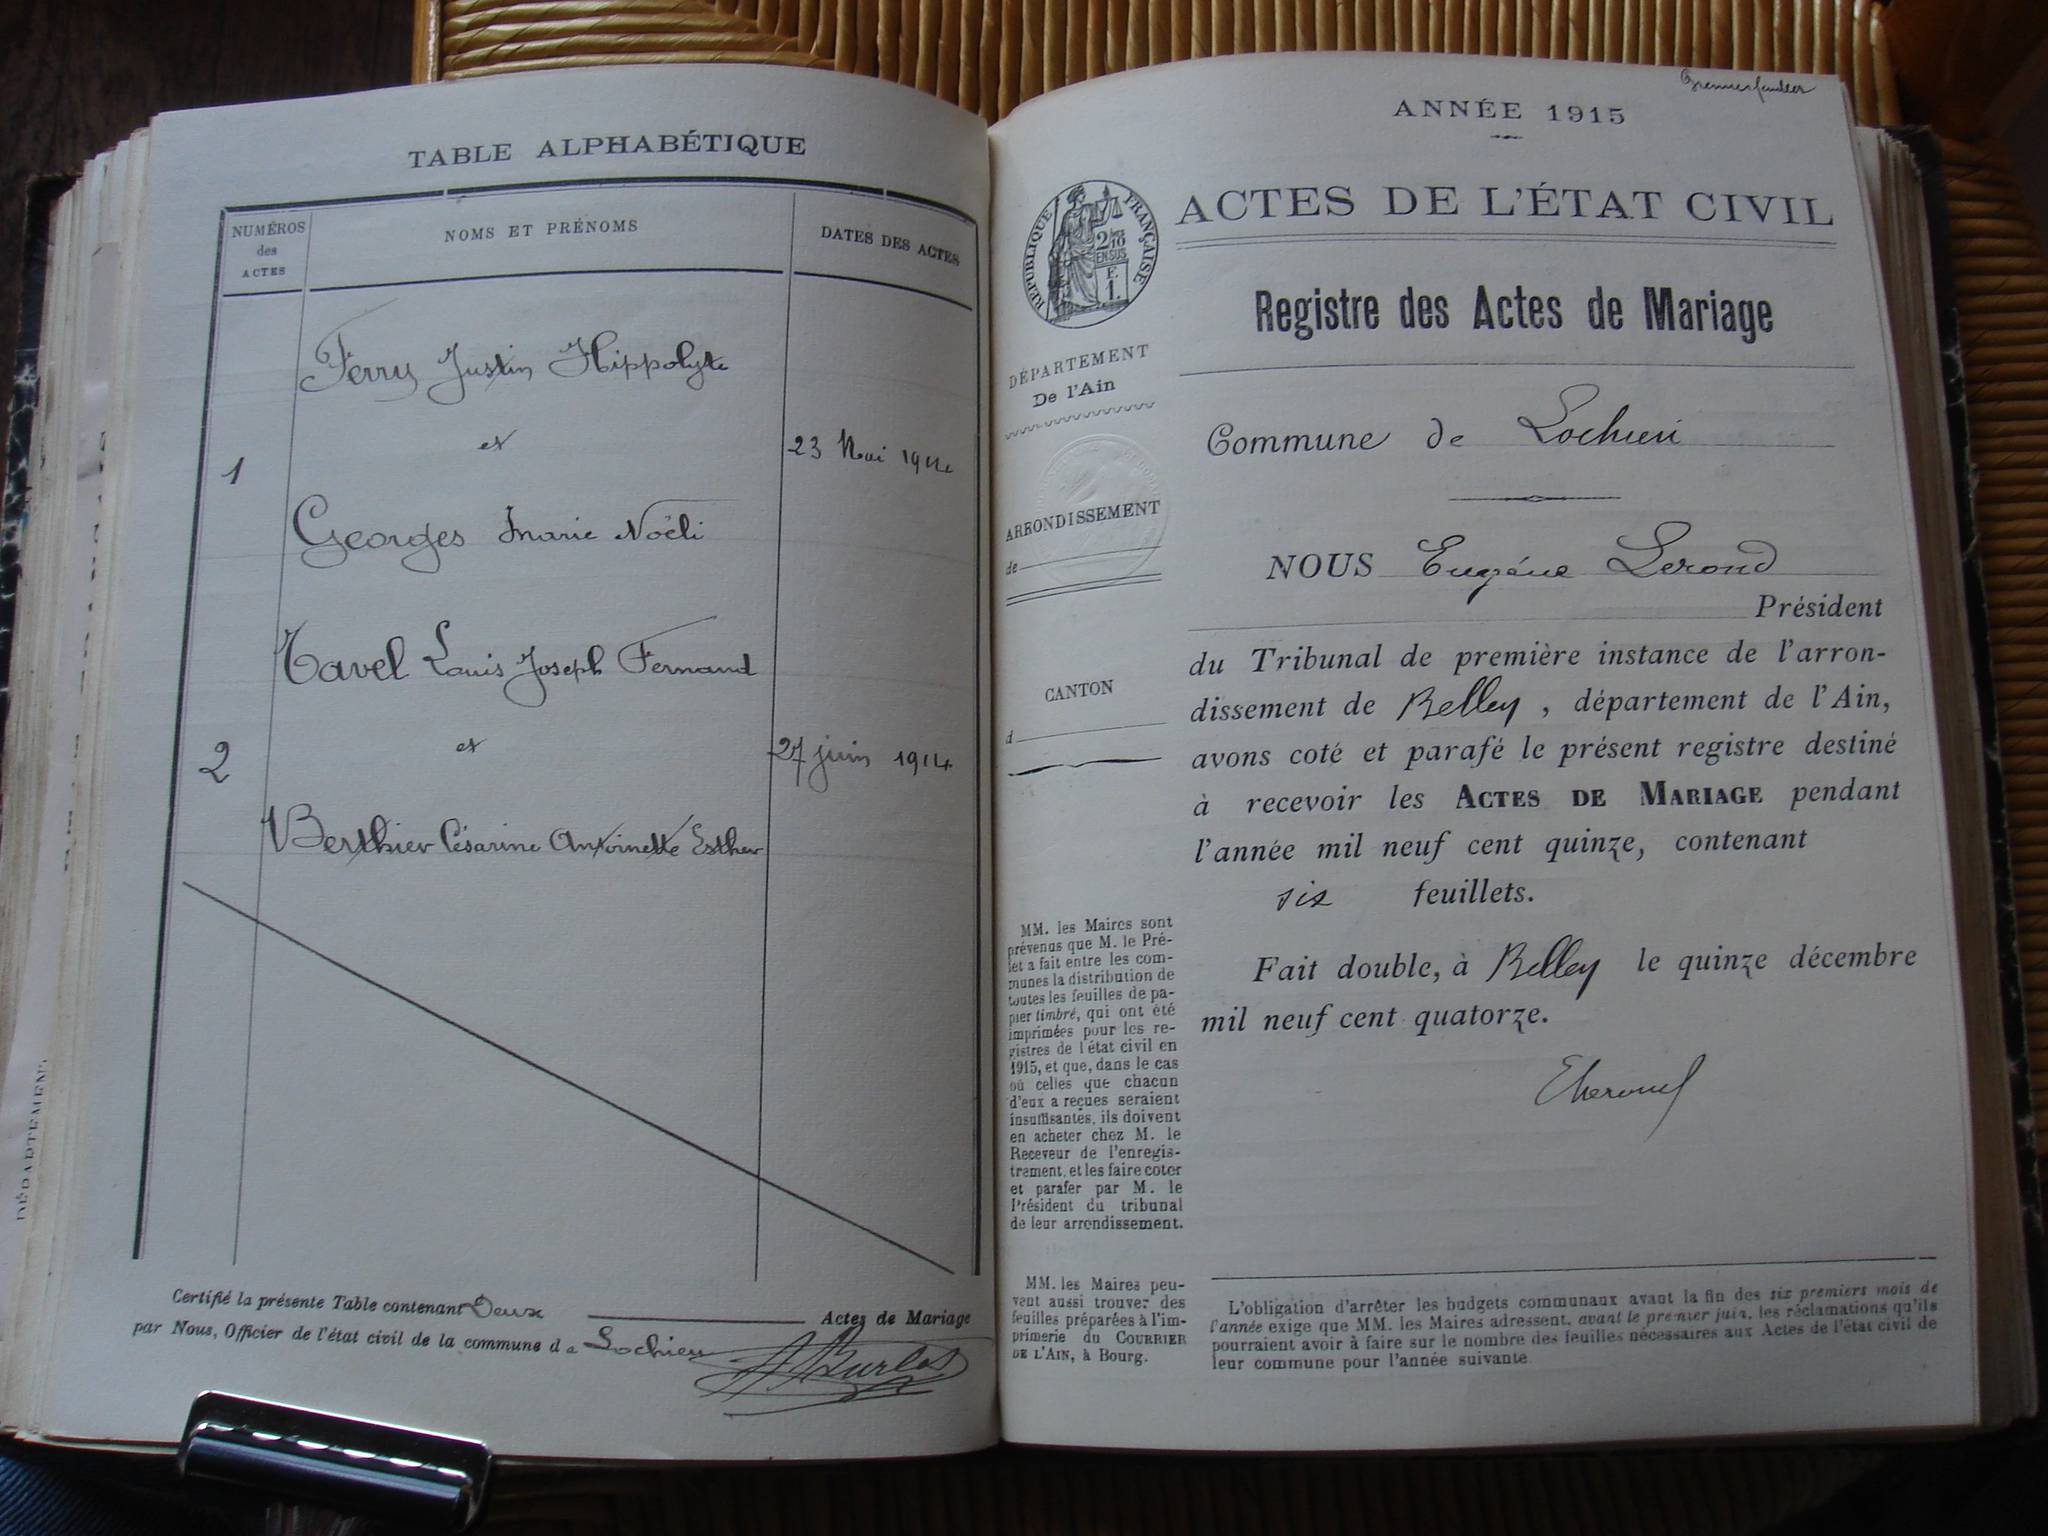 TABLE ALPHABÉTIQUE
NUMÉROS
des
ACTES
NOMS ET PRÉNOMS
DATES DES ACTES
Ferry Justin Hippolyte
et
1
23 Mai 1914
Georges Marie Noëli
Tavel Louis Joseph Fernand
et
2
27 juin 1914
Berthier Césarine Antoinette Esther
Certifié la présente Table contenant Deux Actes de Mariage
par Nous, Officier de l'état civil de la commune de Lochieu
DÉPARTEMENT
ANNÉE 1915
ACTES DE L'ÉTAT CIVIL
RÉPUBLIQUE FRANÇAISE
2/10
EN SUS
F.
1.
Registre des Actes de Mariage
DÉPARTEMENT
De l'Ain
ARRONDISSEMENT
de
CANTON
d
Commune de Lochieu
NOUS Eugène Lerond
Président
du Tribunal de première instance de l'arron-
dissement de Belley, département de l'Ain,
avons coté et parafé le présent registre destiné
à recevoir les ACTES DE MARIAGE pendant
l'année mil neuf cent quinze, contenant
six feuillets.
Fait double, à Belley le quinze décembre
mil neuf cent quatorze.
MM. les Maires sont
prévenus que M. le Pré-
fet a fait entre les com-
munes la distribution de
toutes les feuilles de pa-
pier timbré, qui ont été
imprimées pour les re-
gistres de l'état civil en
1915, et que, dans le cas
où celles que chacun
d'eux a reçues seraient
insuffisantes, ils doivent
en acheter chez M. le
Receveur de l'enregis-
trement, et les faire coter
et parafer par M. le
Président du tribunal
de leur arrondissement.
MM. les Maires peu-
vent aussi trouver des
feuilles préparées à l'im-
primerie du COURRIER
DE L'AIN, à Bourg.
L'obligation d'arrêter les budgets communaux avant la fin des six premiers mois de
l'année exige que MM. les Maires adressent, avant le premier juin, les réclamations qu'ils
pourraient avoir à faire sur le nombre des feuilles nécessaires aux Actes de l'état civil de
leur commune pour l'année suivante